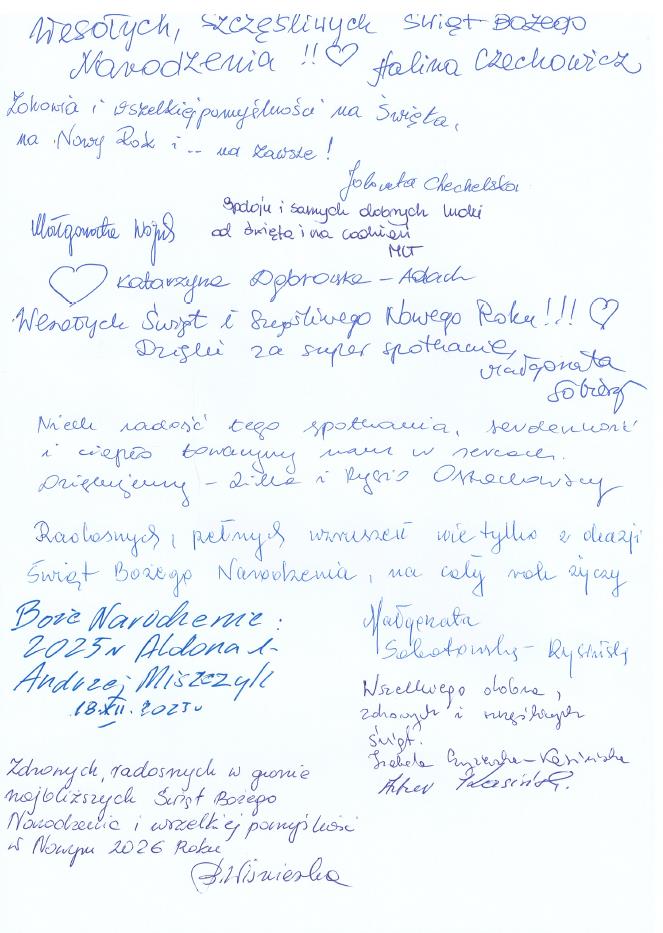 Wesołych, szczęśliwych Świąt Bożego
Narodzenia !! Halina Czechowicz
Zdrowia i wszelkiej pomyślności na Święta,
na Nowy Rok i -- na zawsze !
Jolanta Chechelska
Spokoju i samych dobrych ludzi
od święta i na codzień
Małgorzata
Katarzyna Dąbrowska - Adach
Wesołych Świąt i Szczęśliwego Nowego Roku !!!
Dzięki za super spotkanie,
Małgorzata
Niech radość tego spotkania, serdeczność
i ciepło towarzyszy nam w sercach.
Dziękujemy - i Rysio
Radosnych i pełnych wzruszeń nie tylko z okazji
Świąt Bożego Narodzenia, na cały rok życzy
Małgorzata
Sobotowska - Rysińska
Boże Narodzenie:
2025r Aldona i
Andrzej Miszczyk
18.XII.2025r
Wszelkiego dobra,
zdrowych i szczęśliwych
świąt.
Izabela
Zdrowych, radosnych w gronie
najbliższych Świąt Bożego
Narodzenia i wszelkiej pomyślności
w Nowym 2026 Roku
B. Wiśniewska